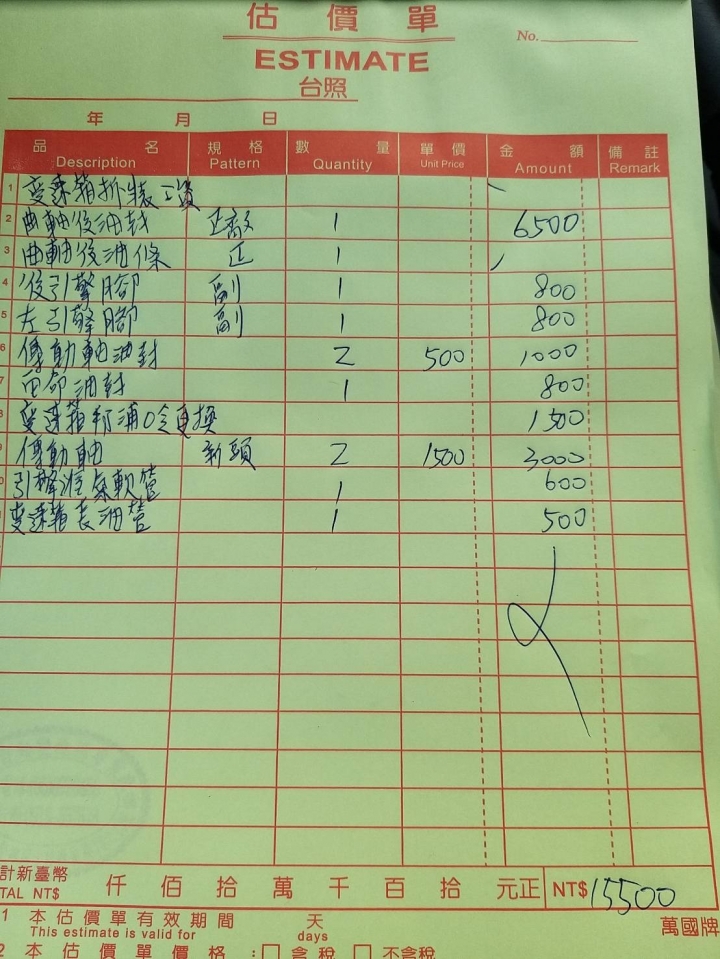 估價單
No.
ESTIMATE
台照
年 月 日
品名 規格 數量 單價 金額 備註
Description Pattern Quantity Unit Price Amount Remark
1 变速箱拆裝工資
2 曲軸後油封 正廠 1 6500
3 曲軸後油條 正 1
4 後引擎腳 副 1 800
5 左引擎腳 副 1 800
6 傳動軸油封 2 500 1000
7 油封 1 800
变速箱 換 1500
傳動軸 新頭 2 1500 3000
引擎 軟管 1 600
变速箱 油管 1 500
計新臺幣 仟佰拾萬千百拾元正 NT$ 15500
TAL NT$
1 本估價單有效期間 天 萬國牌
This estimate is valid for days
2 本估價單價格:□含稅 □不含稅